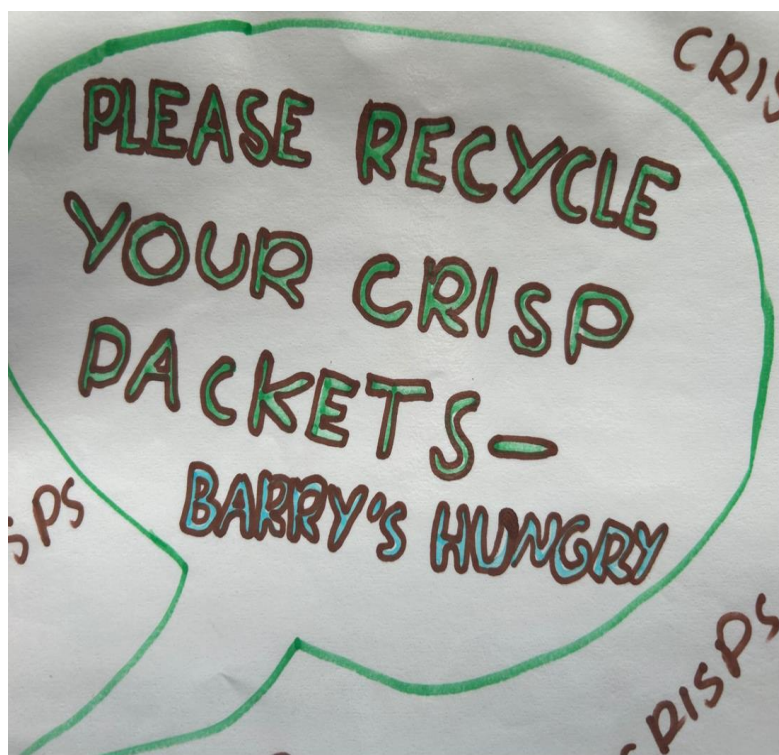 CRIS
PLEASE RECYCLE
YOUR CRISP
PACKETS-
BARRY'S HUNGRY
SPS
CRISPS